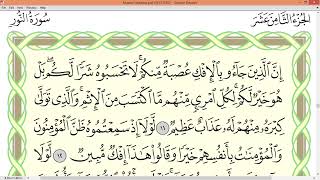 سُورَةُ النُّورِ
الجُزْءُ الثَّامِنَ عَشَرَ
إِنَّ الَّذِينَ جَاءُو بِالْإِفْكِ عُصْبَةٌ مِنكُمْ لَا تَحْسَبُوهُ شَرًّا لَّكُم بَلْ
هُوَ خَيْرٌ لَّكُمْ لِكُلِّ امْرِئٍ مِّنْهُم مَّا اكْتَسَبَ مِنَ الْإِثْمِ وَالَّذِي تَوَلَّى
كِبْرَهُ مِنْهُمْ لَهُ عَذَابٌ عَظِيمٌ ١١ لَّوْلَا إِذْ سَمِعْتُمُوهُ ظَنَّ الْمُؤْمِنُونَ
وَالْمُؤْمِنَاتُ بِأَنفُسِهِمْ خَيْرًا وَقَالُوا هَذَا إِفْكٌ مُّبِينٌ ١٢ لَّوْلَا